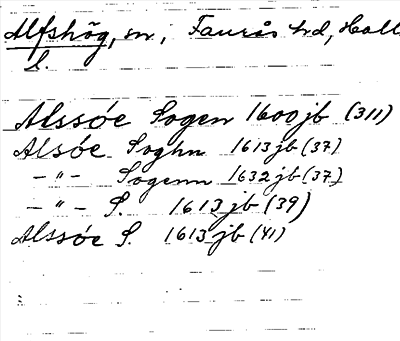 Alfshög, sn, Faurås hd, Hall.
l.
Alssöe Sogen 1600 jb (311)
Alsöe Soghn 1613 jb (37)
–"– Sogenn 1632 jb (37)
–"– S. 1613 jb (39)
Alssöe S. 1613 jb (41)